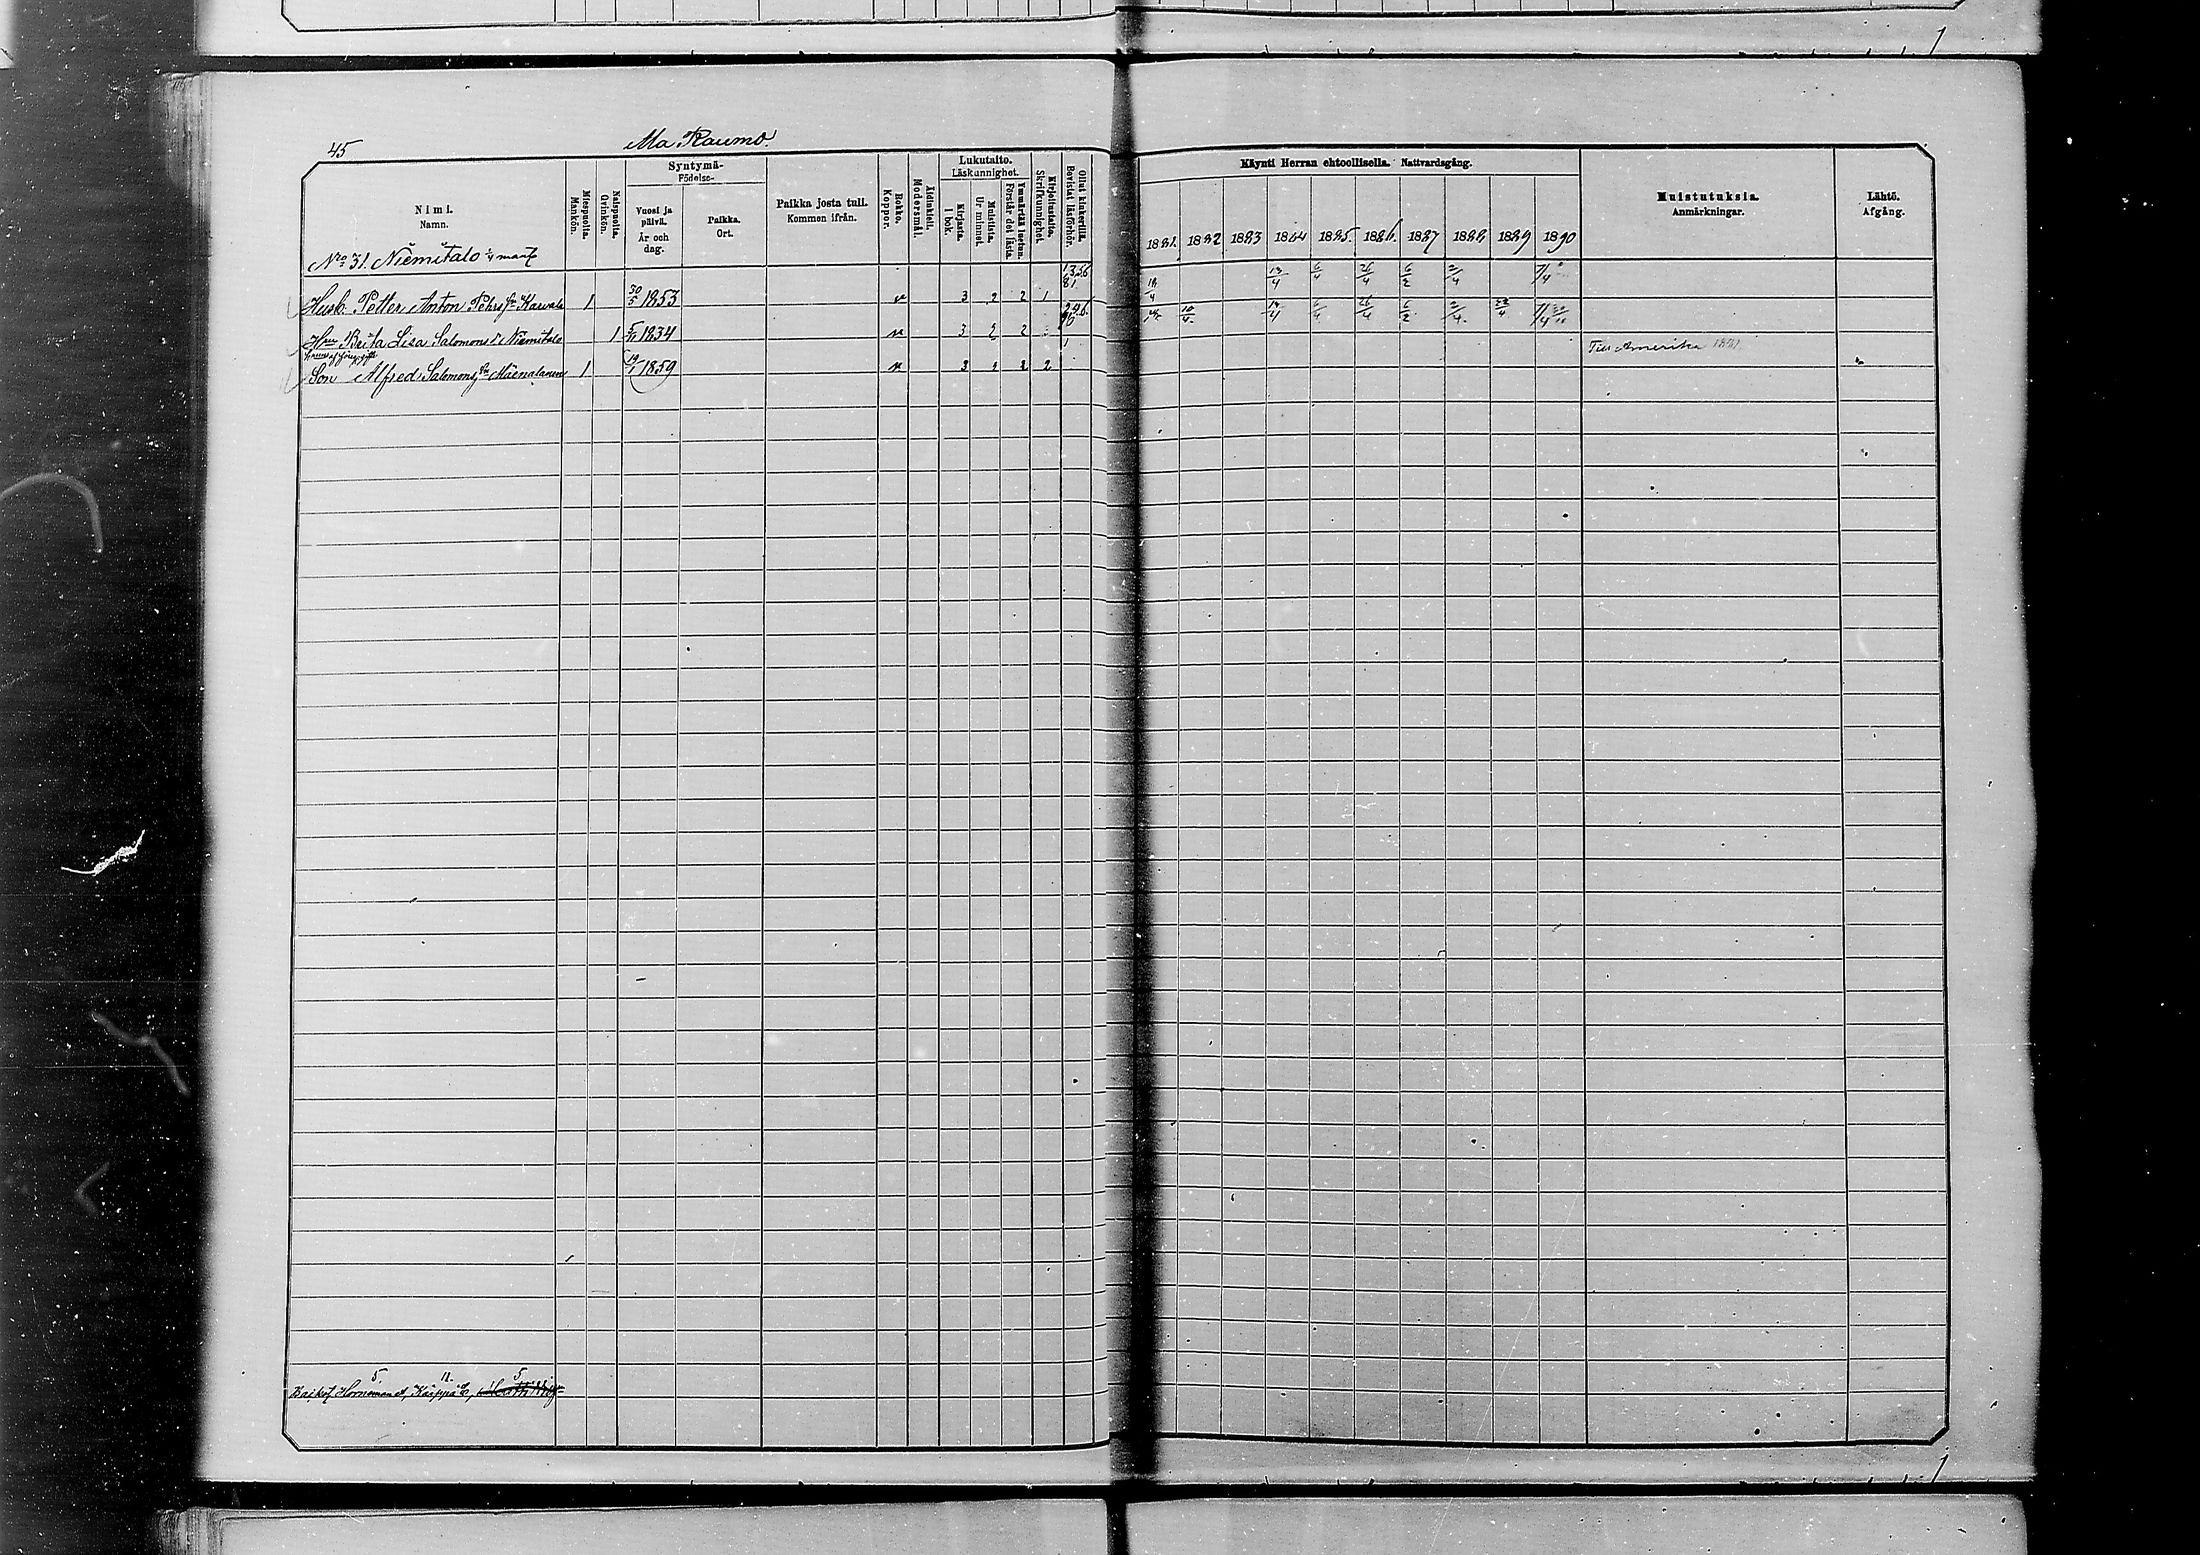 45
Ala Raumo.
Nimi.
Namn.
Miespuolia.
Mankön.
Naispuolia.
Qvinkön.
Syntymä-
Födelse-
Vuosi ja
päivä.
År och
dag.
Paikka.
Ort.
Paikka josta tuli.
Kommen ifrån.
Rokko.
Koppor.
Äidinkieli.
Modersmål.
Lukutaito.
Läskunnighet.
Kirjasta.
I bok.
Muistista.
Ur minnet.
Ymmärtää luetun.
Förstår det lästa.
Kirjoitustaito.
Skrifkunnighet.
Ollut kinkerillä.
Bevistat läsförhör.
Käynti Herran ehtoollisella. Nattvardsgång.
1881. 1882 1883 1884 1885. 1886. 1887 1888 1889 1890
Muistutuksia.
Anmärkningar.
Lähtö.
Afgång.
No 31. Niemitalo 1/4 mant
Husb. Petter Anton Pehrs sn Karvala 1 30/5 1853 v 3 2 2 1 18/4 13/4 6/4 26/4 6/2 2/4 7/4
Hru Brita Lisa Salomons dr Niemitalo 1 5/11 1834 v 3 2 2 10/4 13/4 6/4 26/4 6/2 2/4 22/4 7/4
Son Alfred Salomons sn Mäenalanen 1 19/1 1859 v 3 2 2 2 Till Amerika
5 11. 5
Backst. Horneman A, Käppä E,